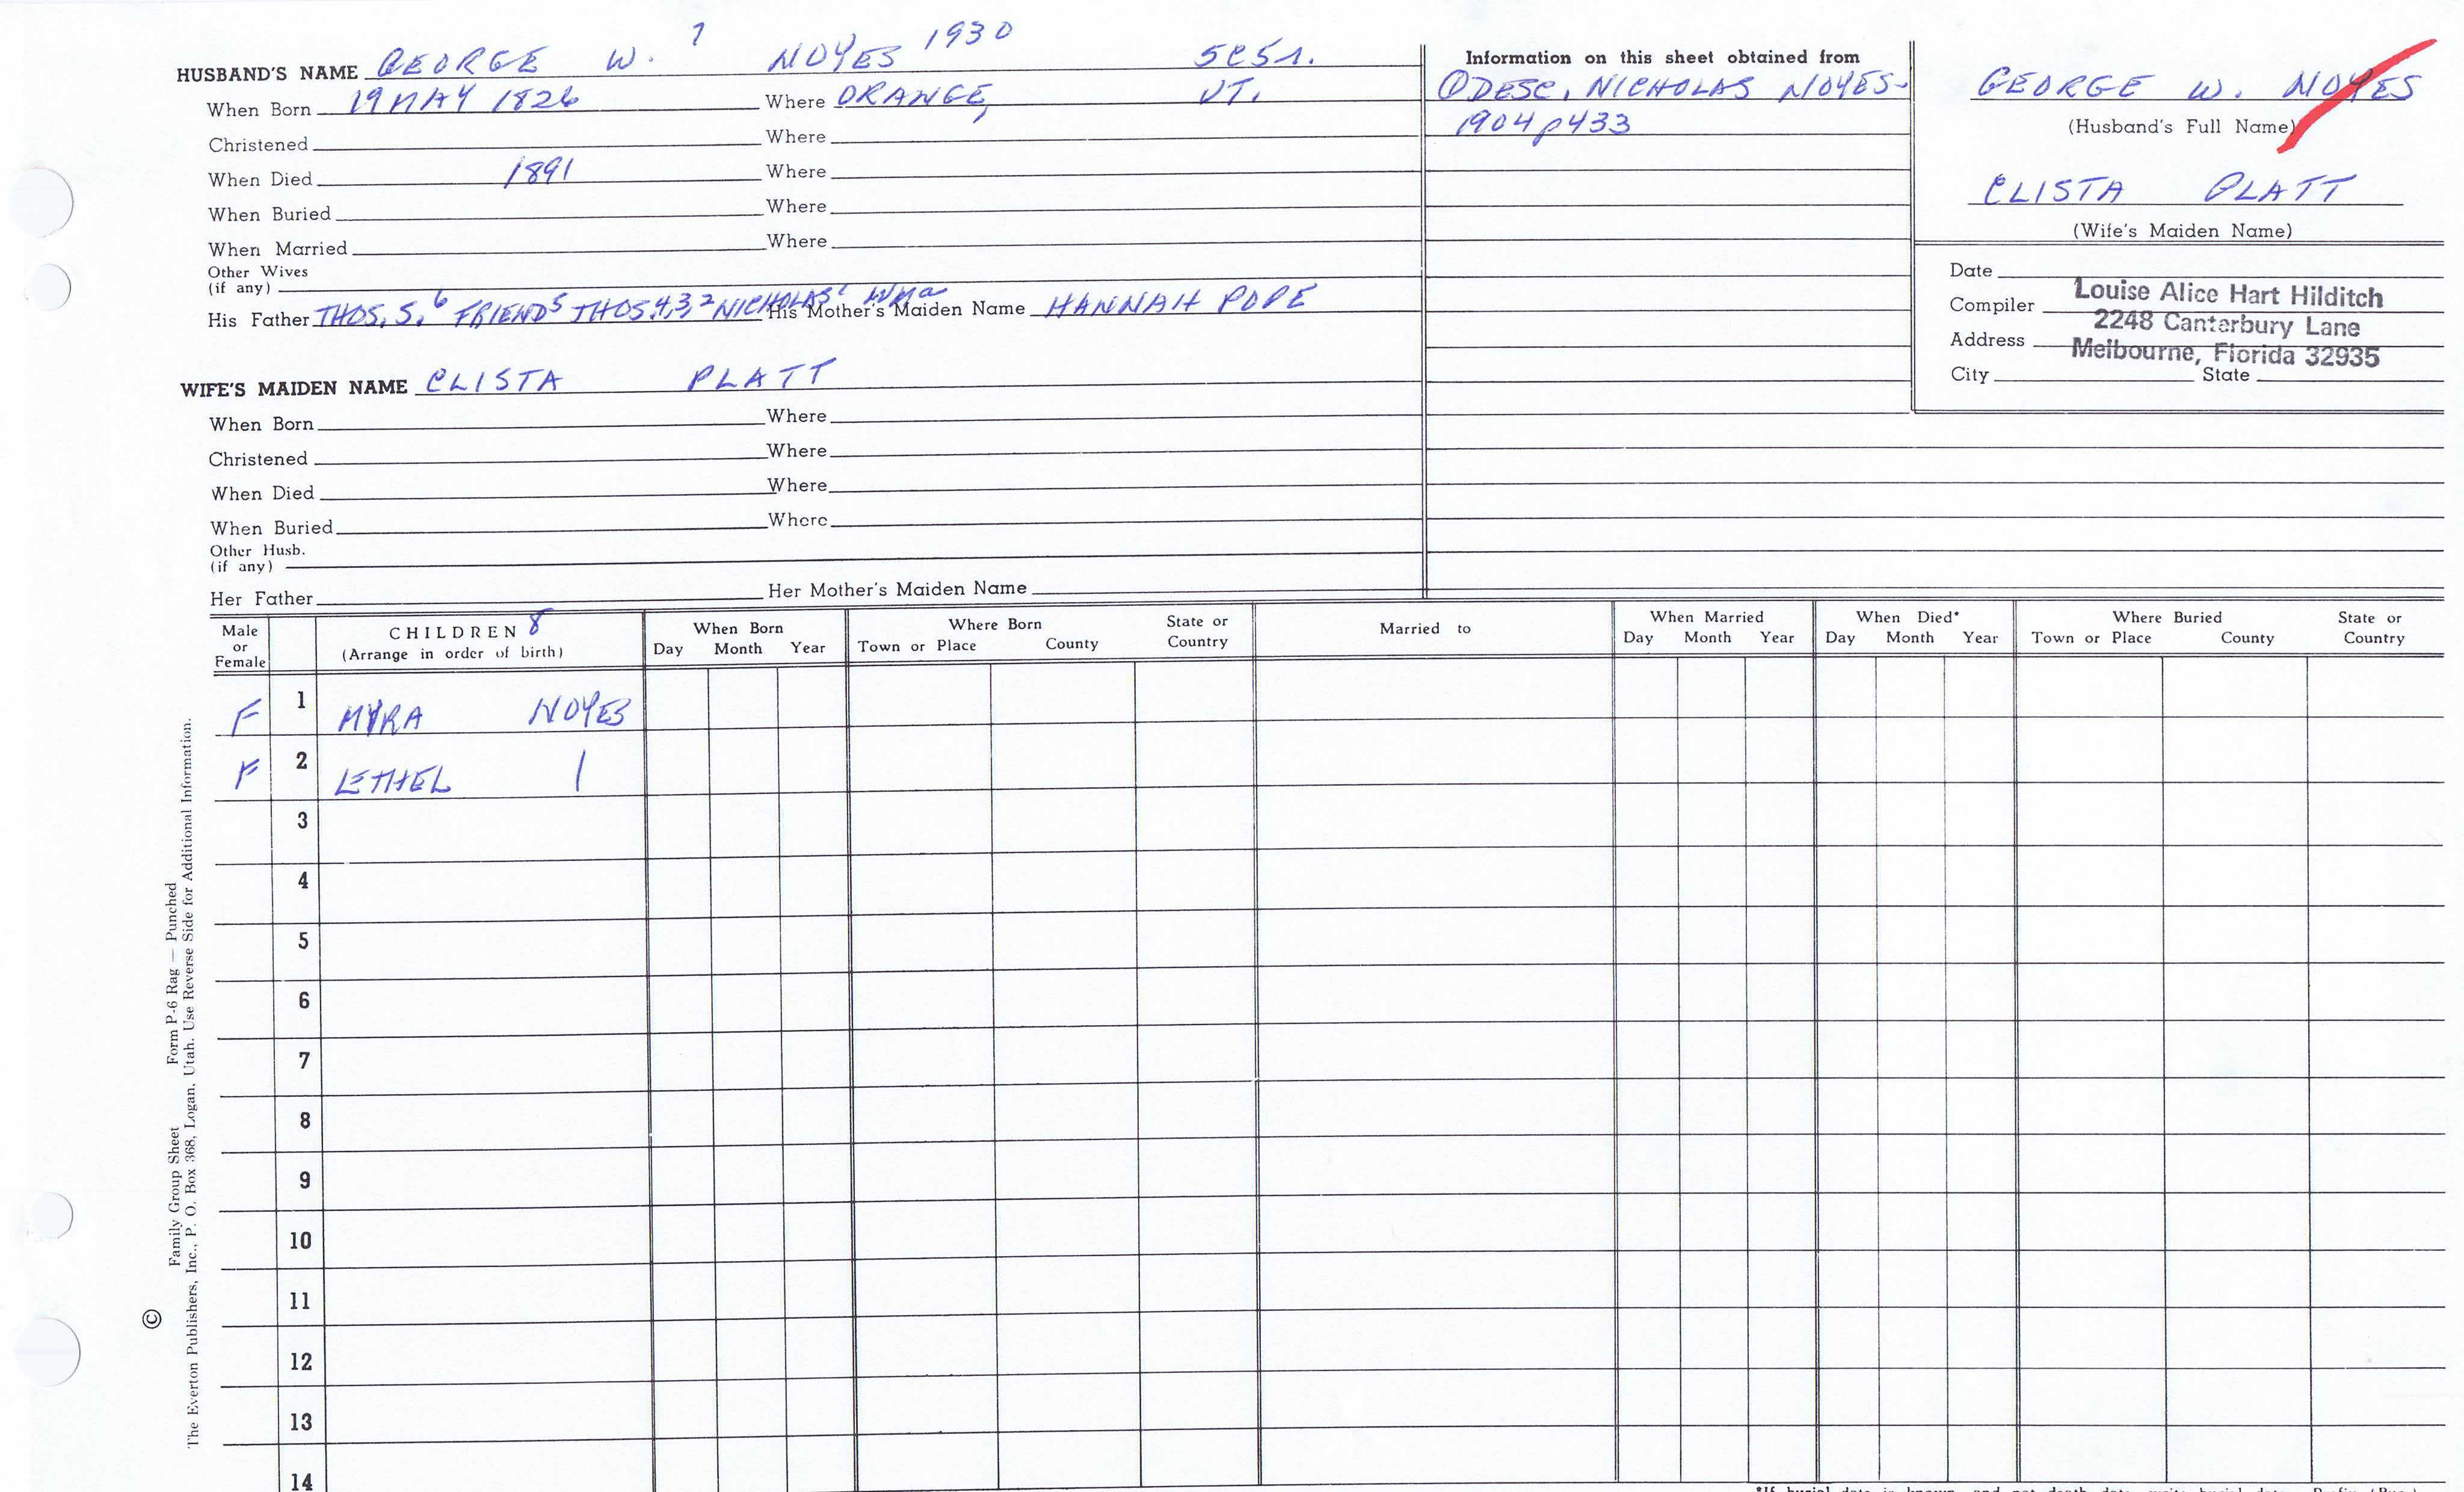 HUSBAND'S NAME GEORGE W. 7 NOYES 1930 5C51.
When Born 19 MAY 1826 Where ORANGE, VT.
Christened Where
When Died 1891 Where
When Buried Where
When Married Where
Other Wives
(if any)
His Father THOS. S.6 FRIEND5 THOS.4,3,2 NICHOLAS1 Wma His Mother's Maiden Name HANNAH POPE
WIFE'S MAIDEN NAME CLISTA PLATT
When Born Where
Christened Where
When Died Where
When Buried Where
Other Husb.
(if any)
Her Father Her Mother's Maiden Name
Information on this sheet obtained from
① DESC. NICHOLAS NOYES-
1904 p433
GEORGE W. NOYES
(Husband's Full Name)
CLISTA PLATT
(Wife's Maiden Name)
Date
Compiler Louise Alice Hart Hilditch
2248 Canterbury Lane
Address Melbourne, Florida 32935
City State
Male or Female CHILDREN 8 (Arrange in order of birth) When Born Day Month Year Where Born Town or Place County State or Country Married to When Married Day Month Year When Died* Day Month Year Where Buried Town or Place County State or Country
F 1 MYRA NOYES
F 2 LETHEL |
3
4
5
6
7
8
9
10
11
12
13
14
Family Group Sheet Form P-6 Rag — Punched
© The Everton Publishers, Inc., P. O. Box 368, Logan, Utah. Use Reverse Side for Additional Information.